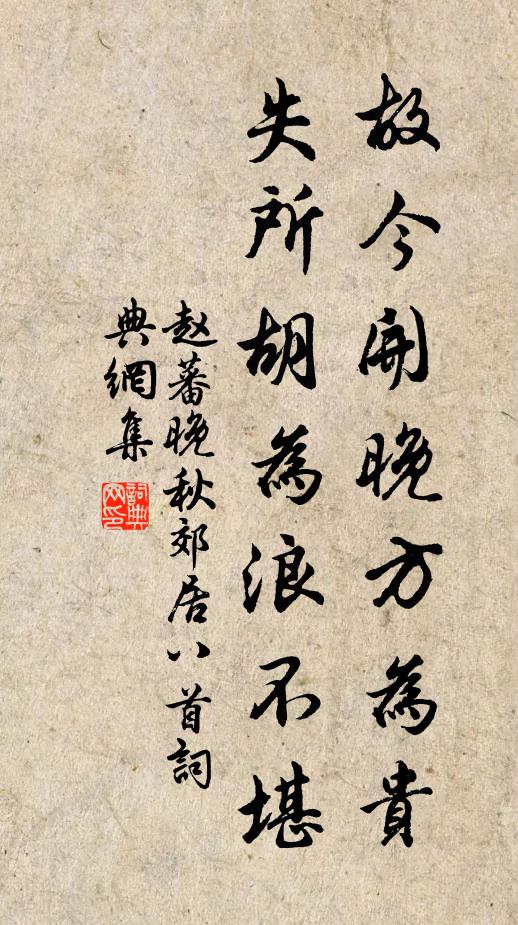 故今開晚方為貴
失所胡為浪不堪
赵蕃晚秋郊居八首詞
典網集
詞典
网印